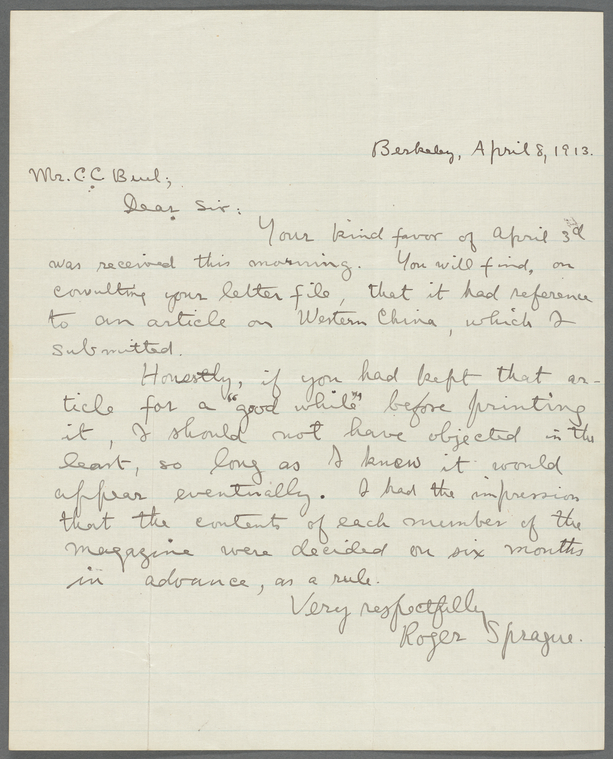 Berkeley, April 8, 1913.
Mr. C. C. Buel;
Dear Sir:
Your kind favor of April 3d
was received this morning. You will find, on
consulting your letter file, that it had reference
to an article on Western China, which I
submitted.
Honestly, if you had kept that ar-
ticle for a "good while" before printing
it, I should not have objected in the
least, so long as I knew it would
appear eventually. I had the impression
that the contents of each number of the
magazine were decided on six months
in advance, as a rule.
Very respectfully
Roger Sprague.